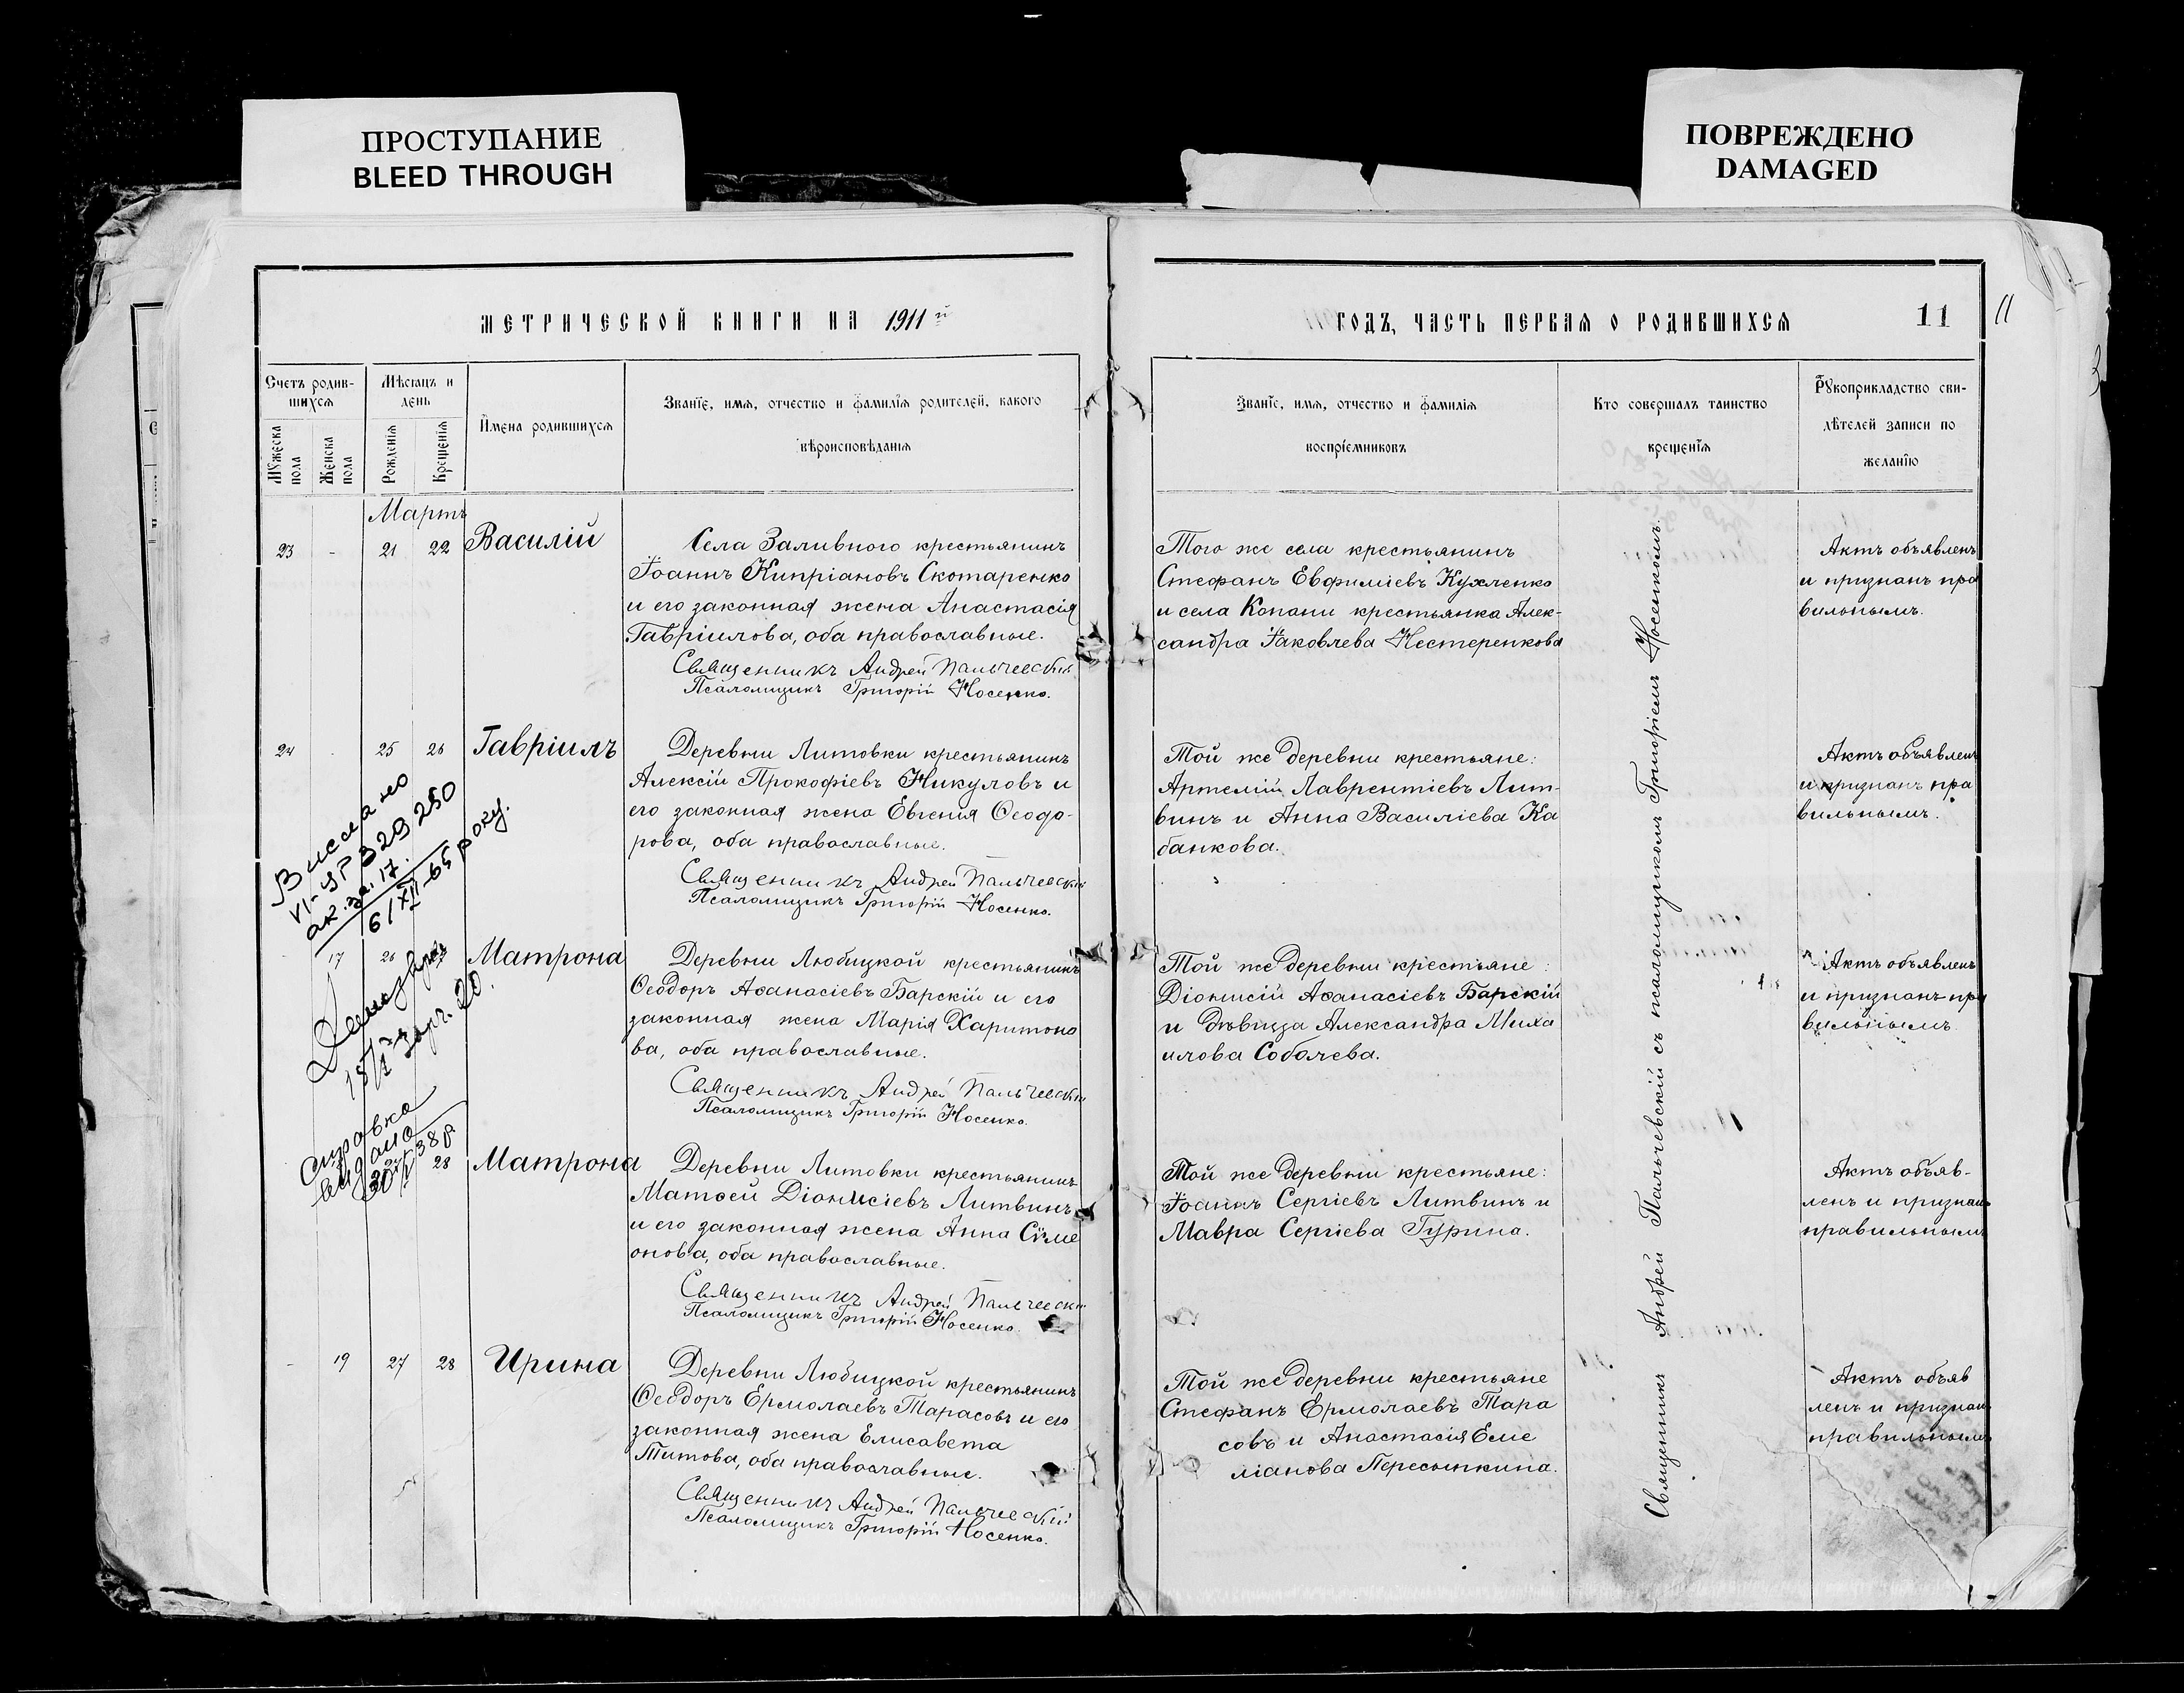 ПРОСТУПАНИЕ
BLEED THROUGH
ПОВРЕЖДЕНО
DAMAGED
МЕТРИЧЕСКОЙ КНИГИ НА 1911 й
Счетъ родив-
шихся
Мѣсяцъ и
день
Мужеска
пола
Женска
пола
Рожденія
Крещенія
Имена родившихся
Званіе, имя, отчество и фамилія родителей, какого
вѣроисповѣданія
Мартъ
23 - 21 22 Василій
Села Заливного крестьянинъ
Іоаннъ Кипріановъ Скотаренко
и его законная жена Анастасія
Гавріилова, оба православные.
Священникъ Андрей Пальчевскій
Псаломщикъ Григорій Носенко.
24 25 26 Гавріилъ
Деревни Литовки крестьянинъ
Алексій Прокофіевъ Никуловъ и
его законная жена Евгенія Ѳеодо-
рова, оба православные.
Священникъ Андрей Пальчевскій
Псаломщикъ Григорій Носенко.
Выслано
VI-ЯР 329250
ак. за. 17.
6/XII-65 року.
17 26 Матрона
Деревни Любицкой крестьянинъ
Ѳеодоръ Аѳанасіевъ Барскій и его
законная жена Марія Харитоно
ва, оба православные.
Священникъ Андрей Пальчевскій
Псаломщикъ Григорій Носенко.
справка
видано
28 Матрона
Деревни Литовки крестьянинъ
Матѳей Діонисіевъ Литвинъ
и его законная жена Анна Сѵме
онова, оба православные.
Священникъ Андрей Пальчевскій
Псаломщикъ Григорій Носенко.
- 19 27 28 Ирина
Деревни Любицкой крестьянинъ
Ѳеодоръ Ермолаевъ Тарасовъ и его
законная жена Елисавета
Титова, оба православные.
Священникъ Андрей Пальчевскій
Псаломщикъ Григорій Носенко.
ГОДЪ, ЧАСТЬ ПЕРВАЯ О РОДИВШИХСЯ 11 11
3
Званіе, имя, отчество и фамилія
воспріемниковъ
Кто совершалъ таинство
крещенія
Рукоприкладство сви-
дѣтелей записи по
желанію
Того же села крестьянинъ
Стефанъ Евфиміевъ Кухленко
и села Копани крестьянка Алек-
сандра Іаковлева Нестеренкова
Актъ объявленъ
и признанъ пра
вильнымъ.
Той же деревни крестьяне:
Артемій Лаврентіевъ Лит-
винъ и Анна Василіева Ка
банкова.
Актъ объявленъ
и признанъ пра
вильнымъ.
Той же деревни крестьяне:
Діонисій Аѳанасіевъ Барскій
и дѣвица Александра Миха
илова Соболева.
Актъ объявленъ
и признанъ пра
вильнымъ.
Той же деревни крестьяне:
Іоаннъ Сергіевъ Литвинъ и
Мавра Сергіева Гурина.
Актъ объяв-
ленъ и признанъ
правильнымъ
Той же деревни крестьяне
Стефанъ Ермолаевъ Тара
совъ и Анастасія Еме
ліанова Пересыпкина.
Актъ объяв
ленъ и признанъ
правильнымъ
Священникъ Андрей Пальчевскій съ псаломщикомъ Григоріемъ Носенкомъ.